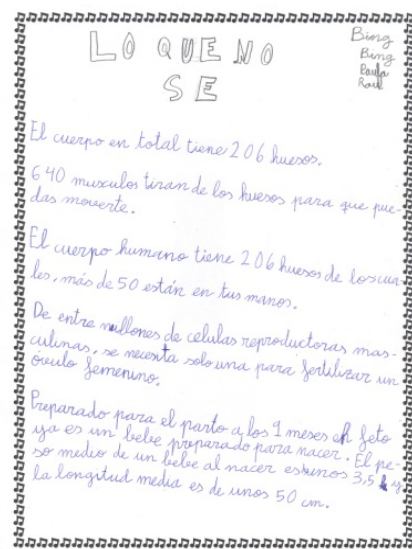 LO QUE NO
SE
Bing
Bing
Paula
Raul
El cuerpo en total tiene 206 huesos.
640 musculos tiran de los huesos para que pue-
das moverte.
El cuerpo humano tiene 206 huesos de los cua-
les, más de 50 están en tus manos.
De entre millones de celulas reproductoras mas-
culinas, se necesita solo una para fertilizar un
óvulo femenino.
Preparado para el parto a los 9 meses el feto
ya es un bebe preparado para nacer. El pe-
so medio de un bebe al nacer es unos 3,5 k y
la longitud media es de unos 50 cm.